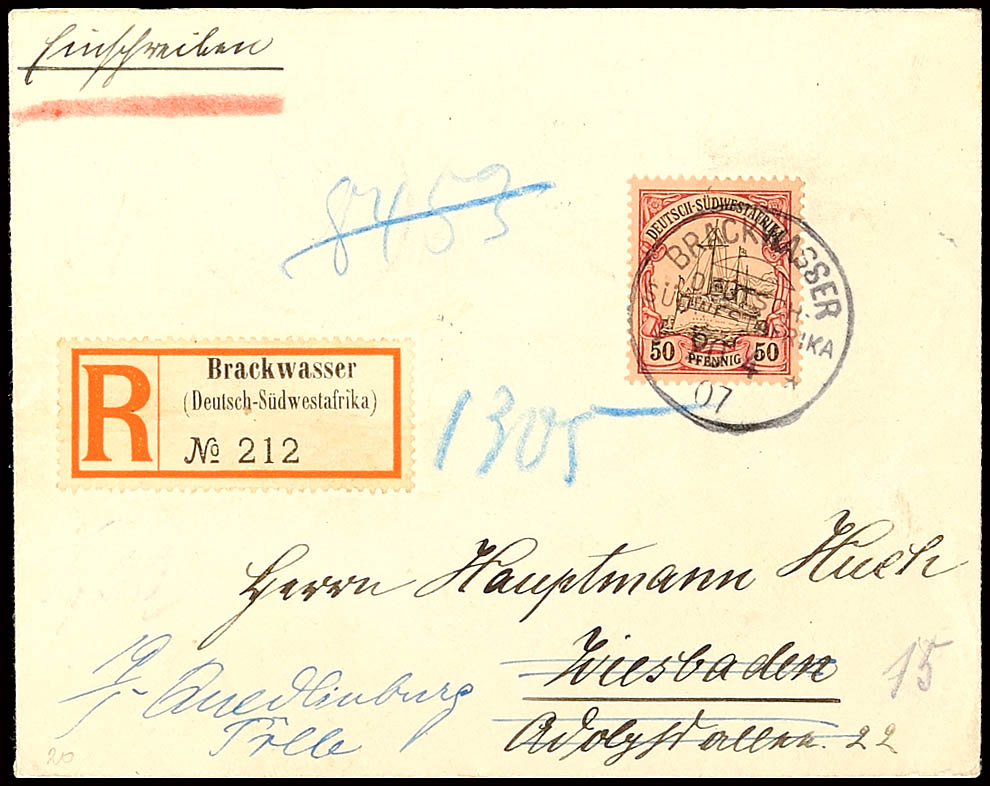 Einschreiben
8453
DEUTSCH-SÜDWESTAFRIKA
50 PFENNIG 50
BRACKWASSER
DEUTSCH-
SÜDWESTAFRIKA
4 *
07
R
Brackwasser
(Deutsch-Südwestafrika)
№ 212
1305
Herrn Hauptmann Huch
Wiesbaden
15
Quedlinburg
Adolfsallee. 22
20